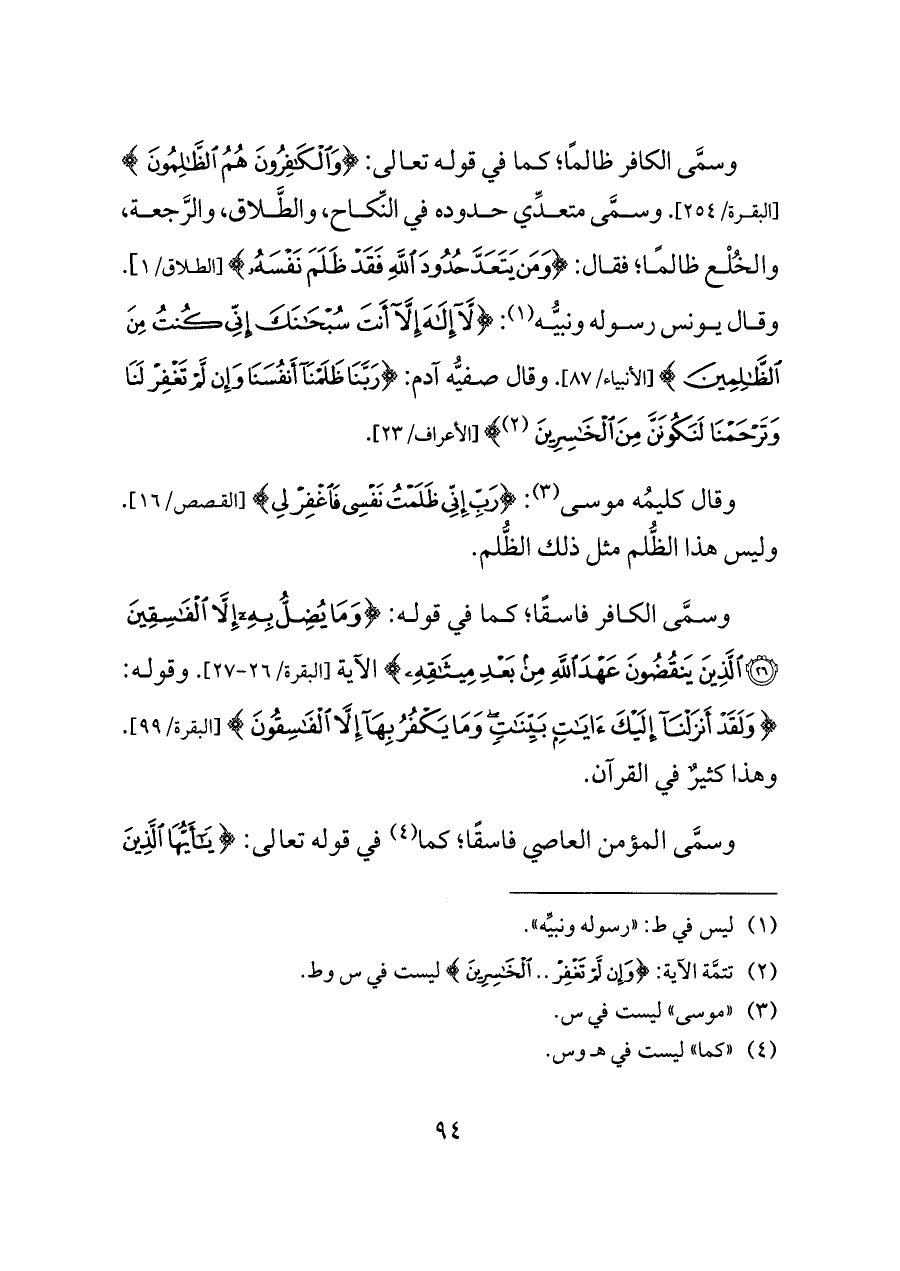 وسمَّى الكافر ظالمًا؛ كما في قوله تعالى: ﴿وَٱلْكَٰفِرُونَ هُمُ ٱلظَّٰلِمُونَ ﴾
[البقرة/ ٢٥٤]. وسمَّى متعدِّي حدوده في النِّكاح، والطَّلاق، والرَّجعة،
والخُلْع ظالمًا؛ فقال: ﴿وَمَن يَتَعَدَّ حُدُودَ ٱللَّهِ فَقَدْ ظَلَمَ نَفْسَهُۥ ﴾ [الطلاق/ ١].
وقال يونس رسوله ونبيُّه(١): ﴿لَّآ إِلَٰهَ إِلَّآ أَنتَ سُبْحَٰنَكَ إِنِّى كُنتُ مِنَ
ٱلظَّٰلِمِينَ ﴾ [الأنبياء/ ٨٧]. وقال صفيُّه آدم: ﴿رَبَّنَا ظَلَمْنَآ أَنفُسَنَا وَإِن لَّمْ تَغْفِرْ لَنَا
وَتَرْحَمْنَا لَنَكُونَنَّ مِنَ ٱلْخَٰسِرِينَ (٢)﴾ [الأعراف/ ٢٣].
وقال كليمُه موسى(٣): ﴿رَبِّ إِنِّى ظَلَمْتُ نَفْسِى فَٱغْفِرْ لِى﴾ [القصص/ ١٦].
وليس هذا الظُّلم مثل ذلك الظُّلم.
وسمَّى الكافر فاسقًا؛ كما في قوله: ﴿وَمَا يُضِلُّ بِهِۦٓ إِلَّا ٱلْفَٰسِقِينَ
٢٦ ٱلَّذِينَ يَنقُضُونَ عَهْدَ ٱللَّهِ مِنۢ بَعْدِ مِيثَٰقِهِۦ ﴾ الآية [البقرة/ ٢٦-٢٧]. وقوله:
﴿ وَلَقَدْ أَنزَلْنَآ إِلَيْكَ ءَايَٰتٍۭ بَيِّنَٰتٍۖ وَمَا يَكْفُرُ بِهَآ إِلَّا ٱلْفَٰسِقُونَ ﴾ [البقرة/ ٩٩].
وهذا كثيرٌ في القرآن.
وسمَّى المؤمن العاصي فاسقًا؛ كما(٤) في قوله تعالى: ﴿ يَٰٓأَيُّهَا ٱلَّذِينَ
(١) ليس في ط: «رسوله ونبيِّه».
(٢) تتمَّة الآية: ﴿وَإِن لَّمْ تَغْفِرْ .. ٱلْخَٰسِرِينَ ﴾ ليست في س وط.
(٣) «موسى» ليست في س.
(٤) «كما» ليست في هـ وس.
٩٤